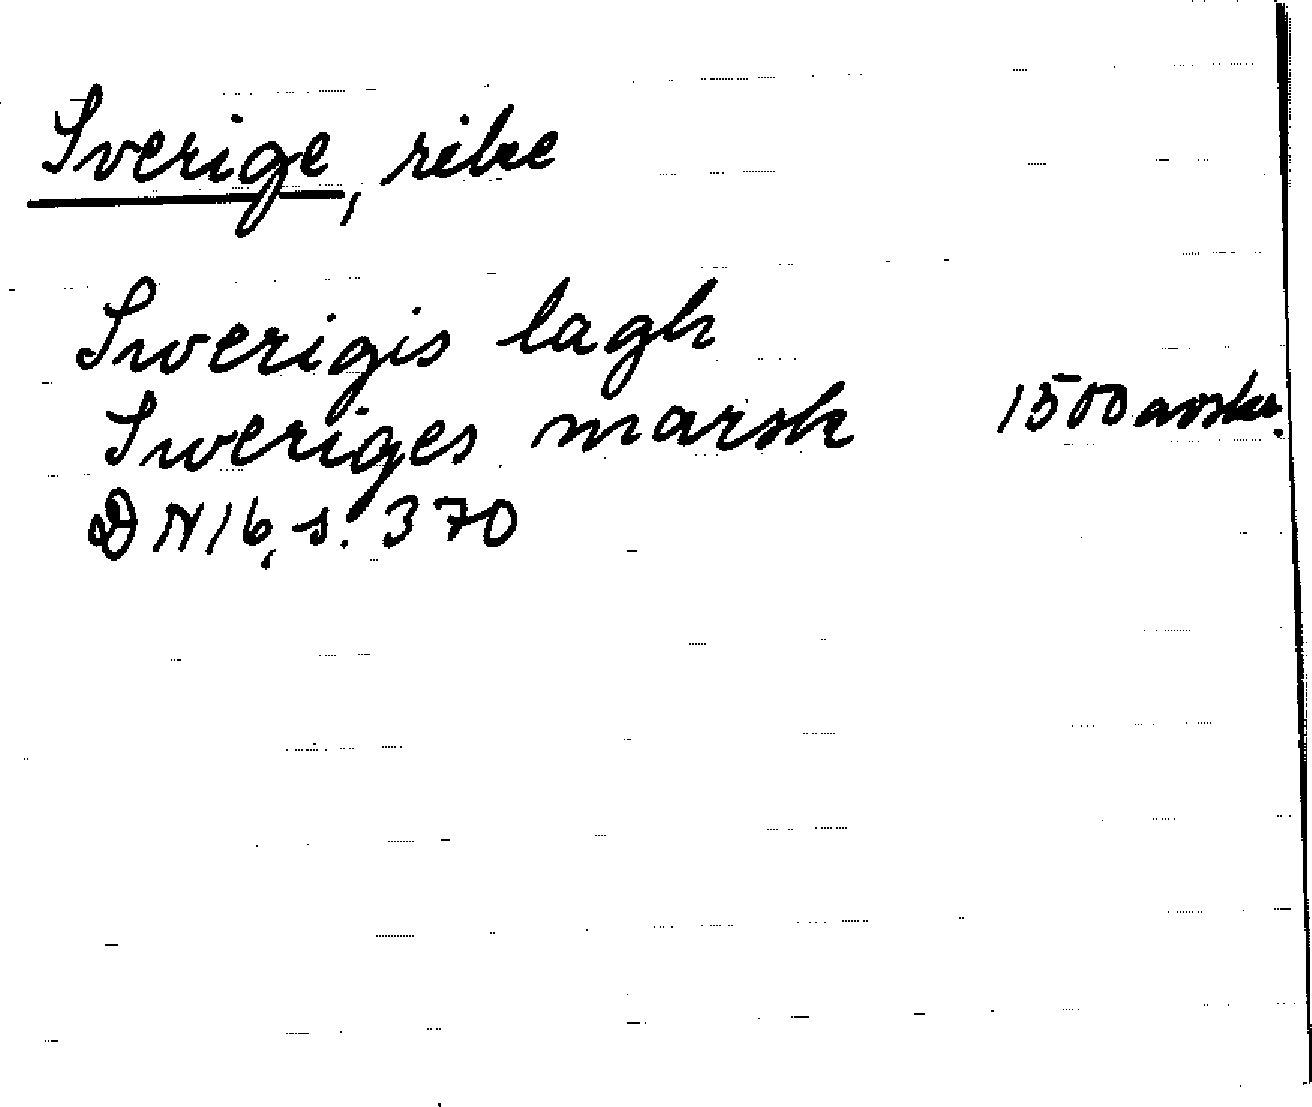 Sverige, rike
Swerigis lagh
Sweriges marsk 1500 avskr.
DN 16, s. 370